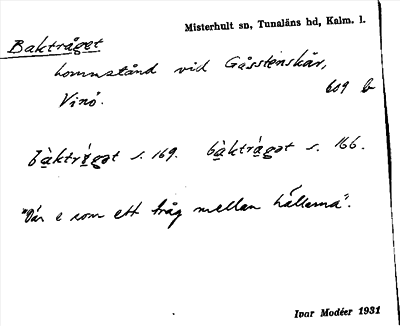 Misterhult sn, Tunaläns hd, Kalm. l.
Baktråget
kommstånd vid Gåsstenskär,
Vinö.
609 b
s. 169. s. 166.
"Där e som ett tråg mellan hällarna".
Ivar Modéer 1931